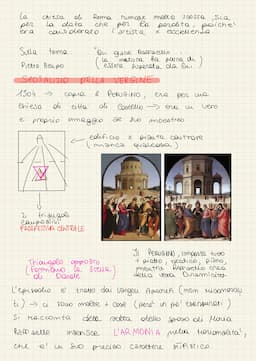 La chiesa di Roma rimase molto scossa, sia
per la data che per la perdita, poiché
era considerato l'artista x eccellenza
Sulla tomba
Pietro Bembo
"Qui giace Raffaello
la natura ha paura di
essere superata da lui.
SPOSALIZIO DELLA VERGINE
1504 → copia x PERUGINO, era per una
chiesa di città di Castello → era un vero
e proprio omaggio al suo maestro
edificio x pianta centrale
(manca qualcosa)
2 triangoli
compositivi
PROSPETTIVA CENTRALE
Triangolo opposto
(formano la stella
di Davide)
Il PERUGINO, imposta tutto
+ piatto
mentre Raffaello crea
della vera Dinamicità
L'episodio è tratto dai Vangeli Apocrifi (non riconosciu
ti) → ci sono molte + cose (però un po' esagerate)
Si racconta della scelta dello sposo di Maria
Raffaello inserisce L'ARMONIA nella
che è un suo preciso carattere stilistico